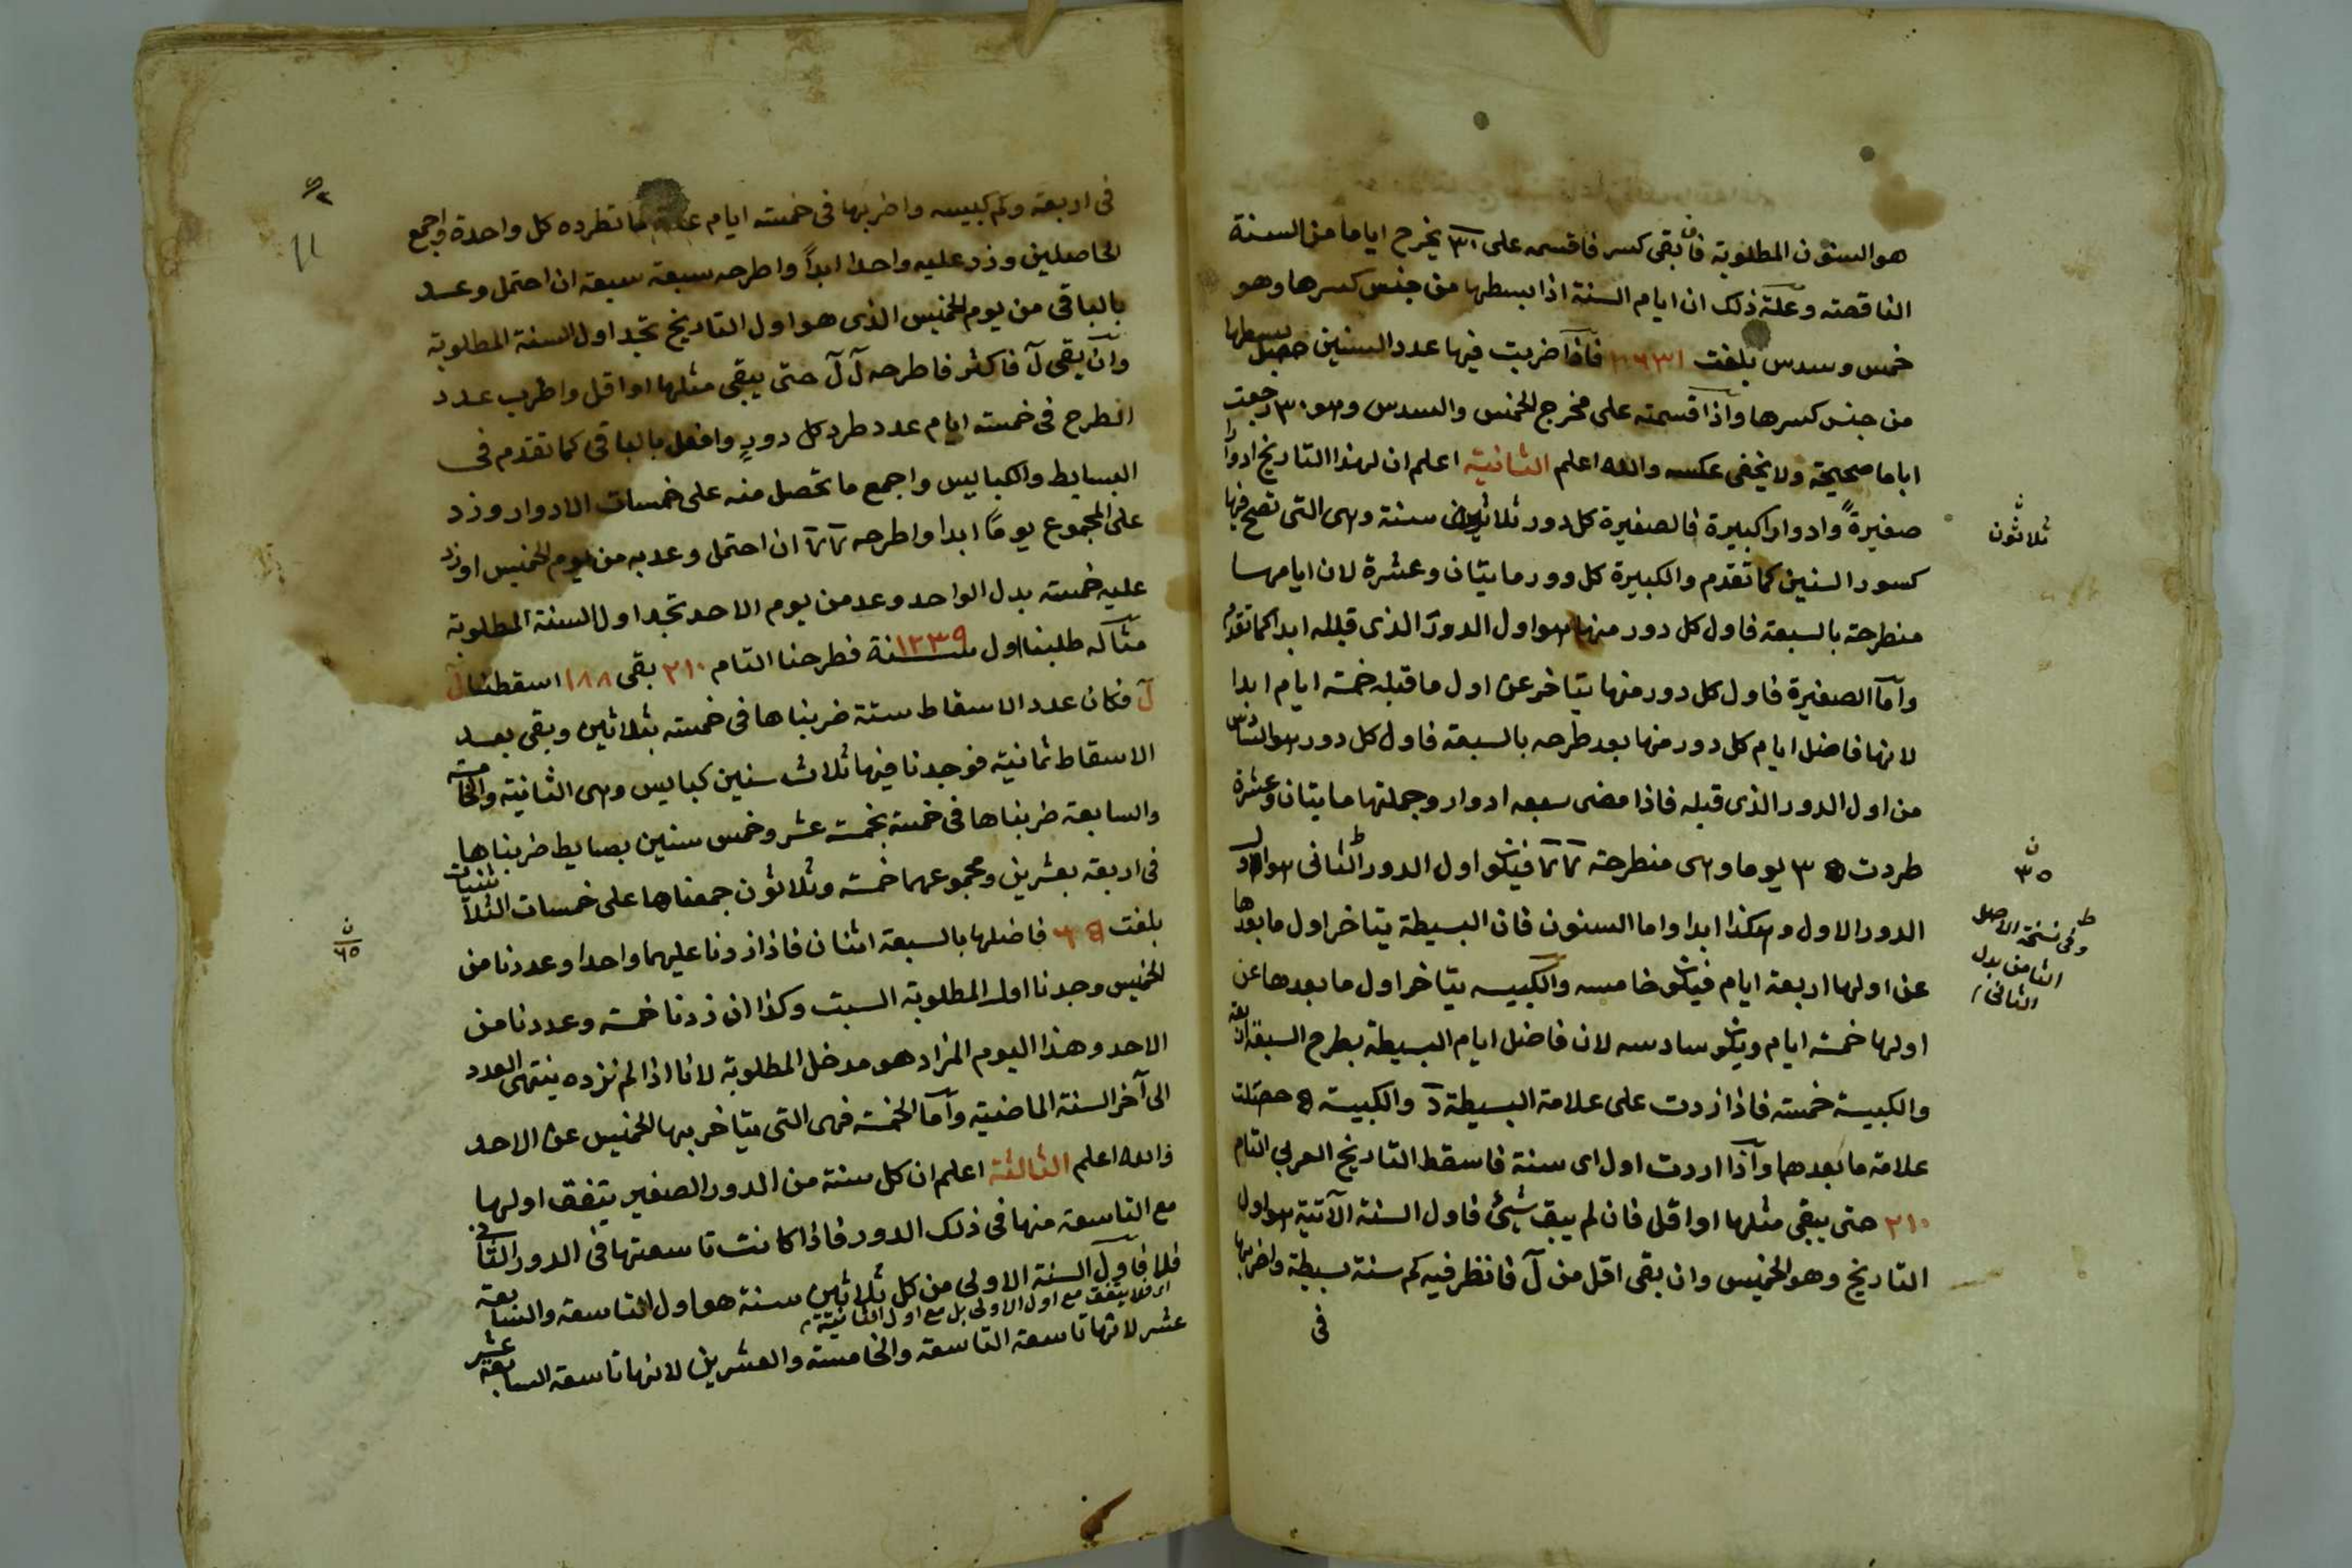 هو السنون المطلوبة فان بقى كسر فاقسمه على ٣٠ يخرج اياما من السنة
الناقصته وعلة ذلك ان ايام السنة اذا بسطها من جنس كسرها وهو
خمس وسدس بلغت ١٠٦٣١ فاذا ضربت فيها عدد السنين حصل بسطها
من جنس كسرها واذا قسمته على مخرج الخمس والسدس وهو ٣٠ رجعت
اياما صحيحة ولا يخفى عكسه والله اعلم الثانية اعلم ان لهذا التاريخ ادوارا
صغيرة وادوارا كبيرة فالصغيرة كل دور ثلاثين سنة وهى التى تصح فيها
ثلاثون
كسور السنين كما تقدم والكبيرة كل دور مايتان وعشرة لان ايامها
منطرحة بالسبعة فاول كل دور منها هو اول الدور الذى قبله ابدا كما تقدم
وأما الصغيرة فاول كل دور منها يتاخر عن اول ما قبله خمسة ايام ابدا
لانها فاضل ايام كل دور منها بعد طرحه بالسبعة فاول كل دور هو السادس
من اول الدور الذى قبله فاذا مضى سبعه ادوار وجملتها مايتان وعشرة
طردت ٣٥ يوما وهى منطرحة ٧ ٧ فيكون اول الدور الثانى هو اول
ن ٣٥
الدور الاول وهكذا ابدا واما السنون فان البسيطة يتاخر اول ما بعدها
ط وفى نسخة الاصل
الثامن بدل
الثانى
عن اولها اربعة ايام فيكون خامسه والكبيسه يتاخر اول ما بعدها عن
اولها خمسة ايام ويكون سادسه لان فاضل ايام البسيطة بطرح السبعة اربعة
والكبيسة خمسه فاذا زدت على علامة البسيطة د والكبيسة ه حصلت
علامة ما بعدها واذا اردت اول اى سنة فاسقط التاريخ العربى التام
٢١٠ حتى يبقى مثلها او اقل فان لم يبق شيئ فاول السنة الآتية هو اول
التاريخ وهو الخميس وان بقى اقل من ل فانظر فيه كم سنة بسيطة واضربها
فى
١١
فى اربعة وكم كبيسه واضربها فى خمسته ايام ما تطرده كل واحدة واجمع
الحاصلين وزد عليه واحدا ابدا واطرحه سبعة سبعة ان احتمل وعد
بالباقى من يوم الخميس الذى هو اول التاريخ تجد اول السنة المطلوبة
وان بقى ل فاكثر فاطرحه ل ل حتى يبقى مثلها او اقل واضرب عدد
الطرح فى خمسته ايام عدد طرد كل دور وافعل بالباقى كما تقدم فى
البسايط والكبايس واجمع ما تحصل منه على خمسات الادوار وزد
على المجموع يوما ابدا واطرحه ٧ ٧ ان احتمل وعد به من يوم الخميس او زد
عليه خمسته بدل الواحد وعد من يوم الاحد تجد اول السنة المطلوبة
مثاله طلبنا اول سنة ١٢٣٩ فطرحنا التام ٢١٠ بقى ١٨٨ اسقطنا ل
ل فكان عدد الاسقاط ستة ضربناها فى خمسته بثلاثين وبقى بعد
الاسقاط ثمانية فوجدنا فيها ثلاث سنين كبايس وهى الثانية والخامسة
والسابعة ضربناها فى خمسة بخمسة عشر وخمس سنين بصايط ضربناها
فى اربعه بعشرين ومجموعهما خمسة وثلاثون جمعناها على خمسات الثلاثنيات
بلغت ٦٥ فاضلها بالسبعة اثنان فاذا زدنا عليهما واحدا وعددنا من
ن ٦٥
الخميس وجدنا اول المطلوبة السبت وكذا ان زدنا خمسة وعددنا من
الاحد وهذا اليوم المزاد هو مدخل المطلوبة لانا اذا لم نزده ينتهى العدد
الى آخر السنة الماضية وأما الخمسة فهى التى يتاخر بها الخميس عن الاحد
والله اعلم الثالثة اعلم ان كل سنة من الدور الصغير يتفق اولها
مع التاسعة منها فى ذلك الدور فاذا كانت تاسعتها فى الدور الثانى
فلا فاول السنة الاولى من كل ثلاثين سنة هو اول التاسعة والسابعة
اى فلا يتفق مع اول الاولى بل مع اول الثانية
عشر لانها تاسعة التاسعة والخامسة والعشرين لانها تاسعة السابعة عشر